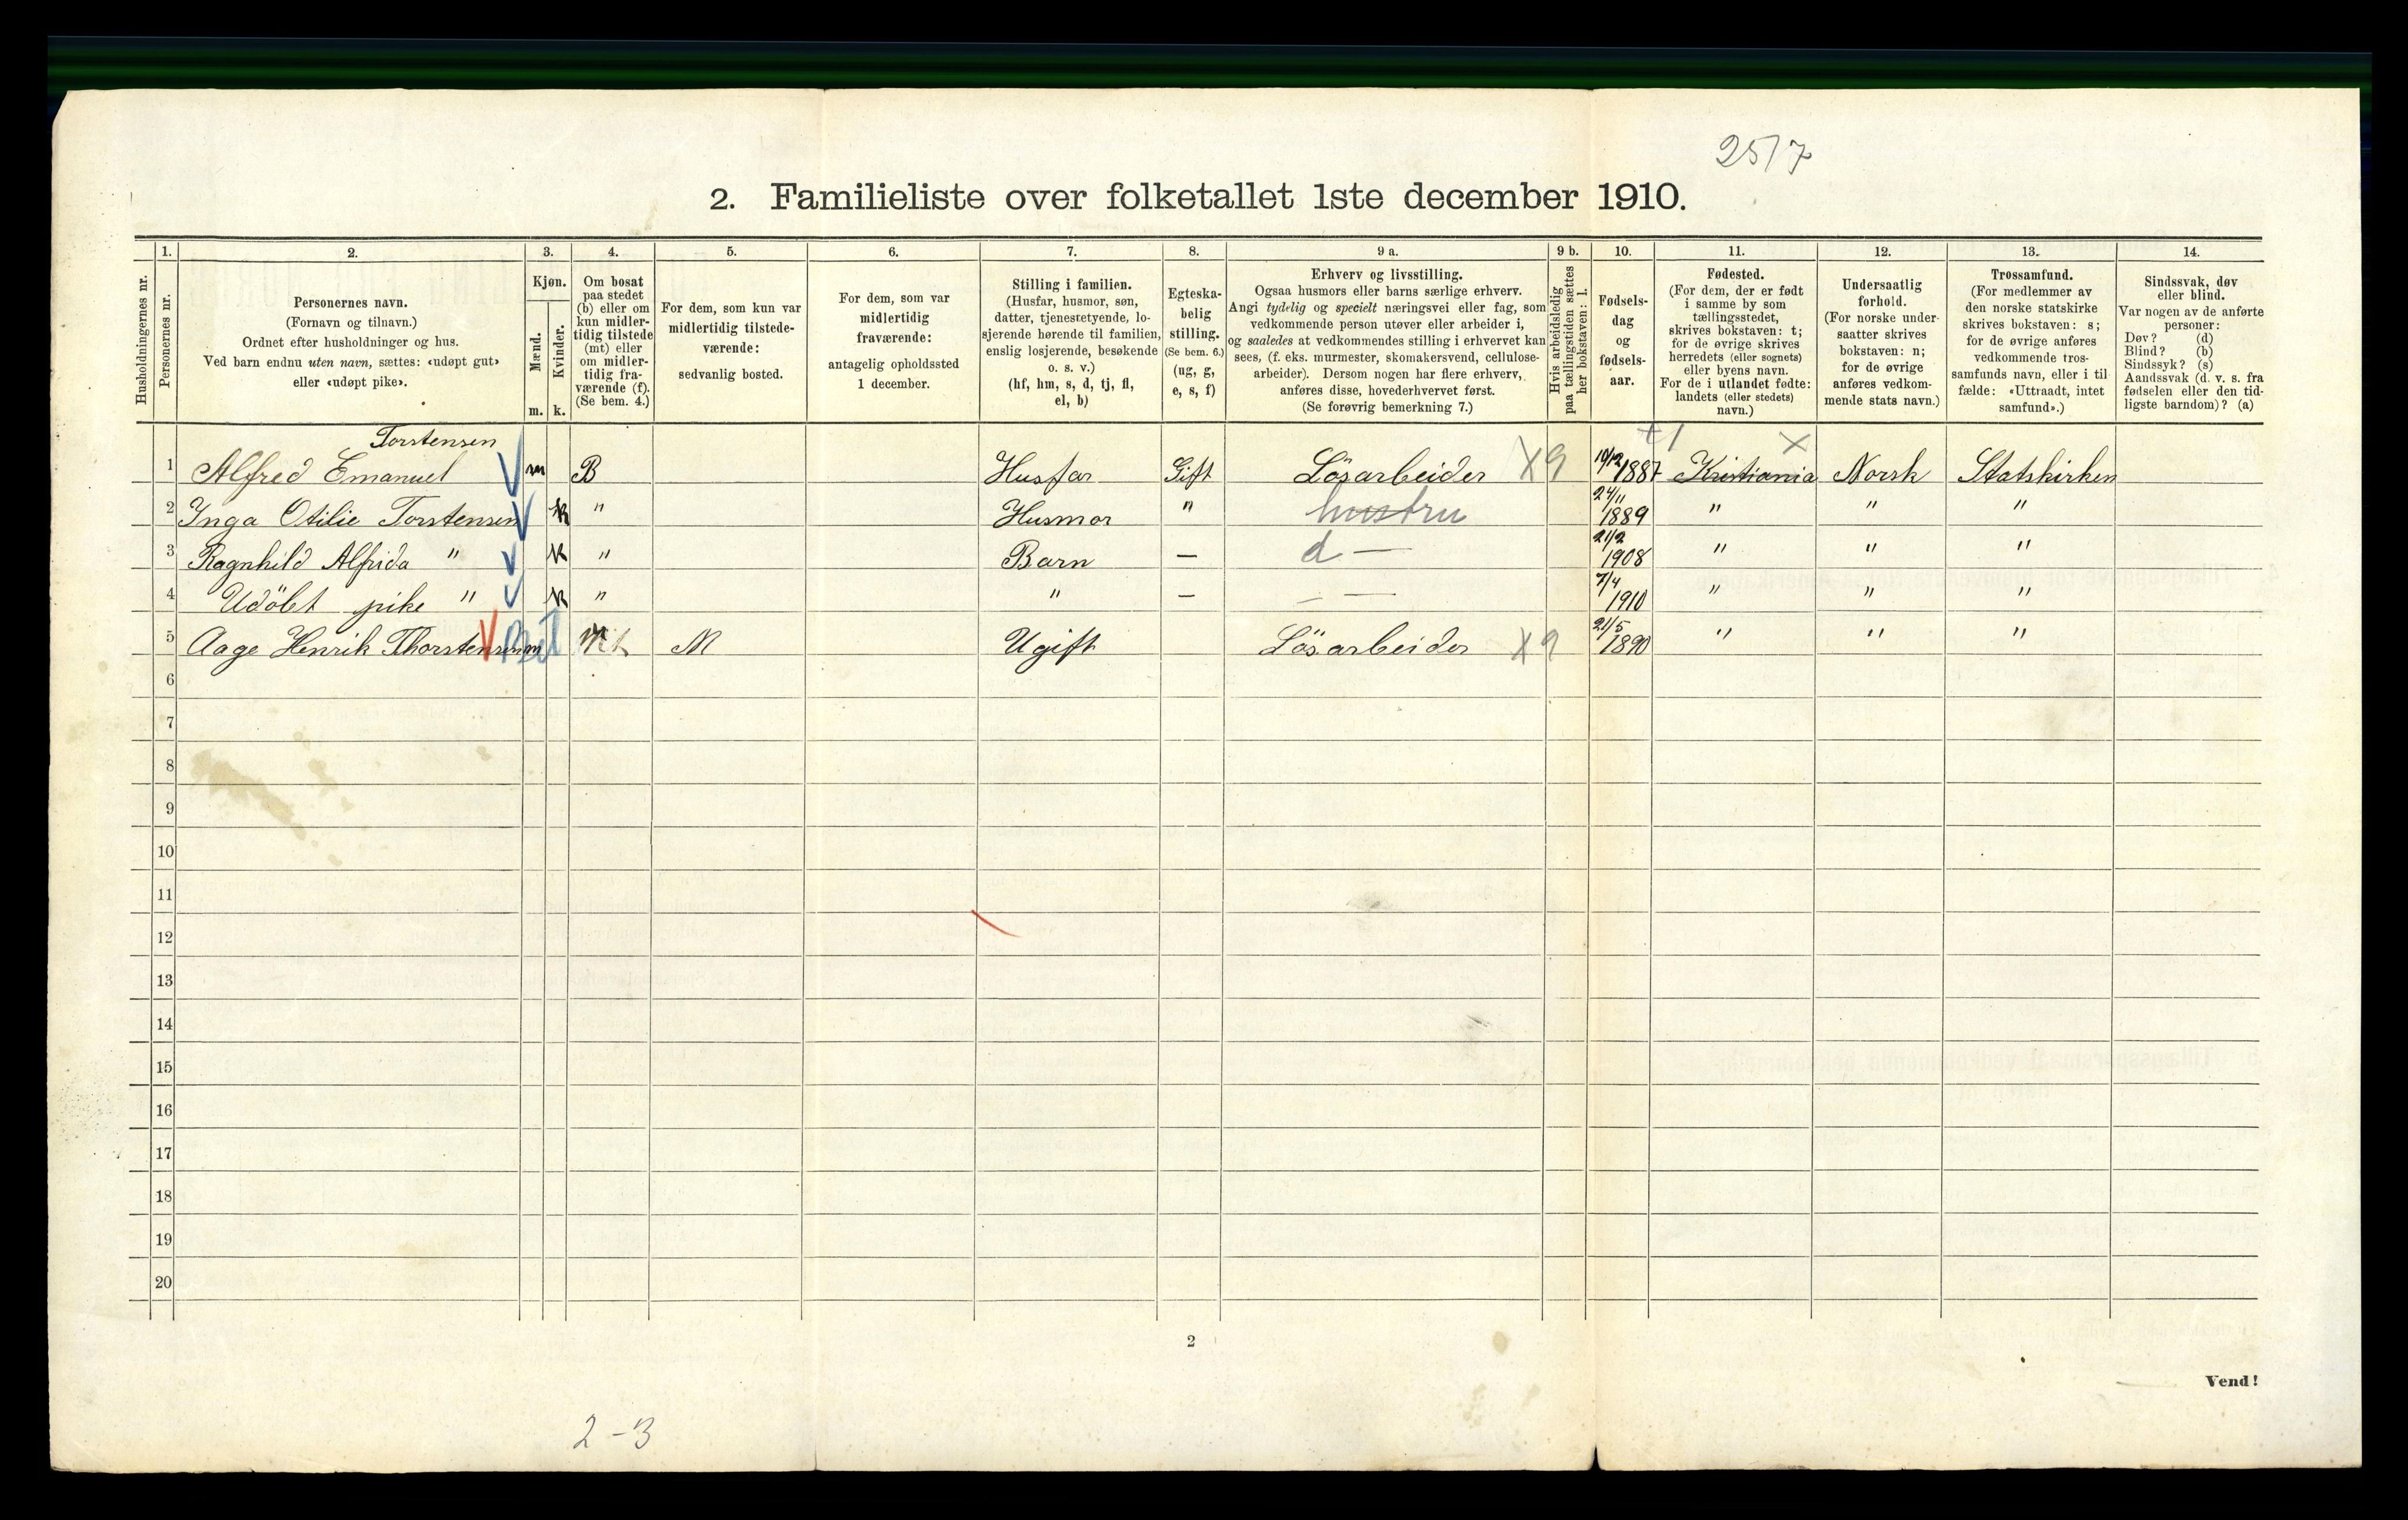 25/7
2. Familieliste over folketallet 1ste december 1910.
Husholdningernes nr.
1.
Personernes nr.
2.
Personernes navn.
(Fornavn og tilnavn.)
Ordnet efter husholdninger og hus.
Ved barn endnu uten navn, sættes: «udøpt gut»
eller «udøpt pike».
3.
Kjøn.
Mænd.
Kvinder.
m. k.
4.
Om bosat
paa stedet
(b) eller om
kun midler-
tidig tilstede
(mt) eller
om midler-
tidig fra-
værende (f).
(Se bem. 4.)
5.
For dem, som kun var
midlertidig tilstede-
værende:
sedvanlig bosted.
6.
For dem, som var
midlertidig
fraværende:
antagelig opholdssted
1 december.
7.
Stilling i familien.
(Husfar, husmor, søn,
datter, tjenestetyende, lo-
sjerende hørende til familien,
enslig losjerende, besøkende
o. s. v.)
(hf, hm, s, d, tj, fl,
el, b)
8.
Egteska-
belig
stilling.
(Se bem. 6.)
(ug, g,
e, s, f)
9 a.
Erhverv og livsstilling.
Ogsaa husmors eller barns særlige erhverv.
Angi tydelig og specielt næringsvei eller fag, som
vedkommende person utøver eller arbeider i,
og saaledes at vedkommendes stilling i erhvervet kan
sees, (f. eks. murmester, skomakersvend, cellulose-
arbeider). Dersom nogen har flere erhverv,
anføres disse, hovederhvervet først.
(Se forøvrig bemerkning 7.)
9 b.
Hvis arbeidsledig
paa tællingstiden sættes
her bokstaven: l.
10.
Fødsels-
dag
og
fødsels-
aar.
11.
Fødested.
(For dem, der er født
i samme by som
tællingsstedet,
skrives bokstaven: t;
for de øvrige skrives
herredets (eller sognets)
eller byens navn.
For de i utlandet fødte:
landets (eller stedets)
navn.)
12.
Undersaatlig
forhold.
(For norske under-
saatter skrives
bokstaven: n;
for de øvrige
anføres vedkom-
mende stats navn.)
13.
Trossamfund.
(For medlemmer av
den norske statskirke
skrives bokstaven: s;
for de øvrige anføres
vedkommende tros-
samfunds navn, eller i til-
fælde: «Uttraadt, intet
samfund».)
14.
Sindssvak, døv
eller blind.
Var nogen av de anførte
personer:
Døv? (d)
Blind? (b)
Sindssyk? (s)
Aandssvak (d. v. s. fra
fødselen eller den tid-
ligste barndom)? (a)
Torstensen
1 Alfred Emanuel m B Husfar Gift Lösarbeider X9 10/12 1887 Kristiania Norsk Statskirken
2 Inga Otilie Torstensen k " Husmor " hustru 24/11 1889 " " "
3 Ragnhild Alfrida " k " Barn — d — 21/2 1908 " " "
4 Udöbt pike " k " " — — — 7/4 1910 " " "
5 Aage Henrik Thorstensen m M Ugift Lösarbeider X9 21/5 1890 " " "
6
7
8
9
10
11
12
13
14
15
16
17
18
19
20
2
Vend!
2-3